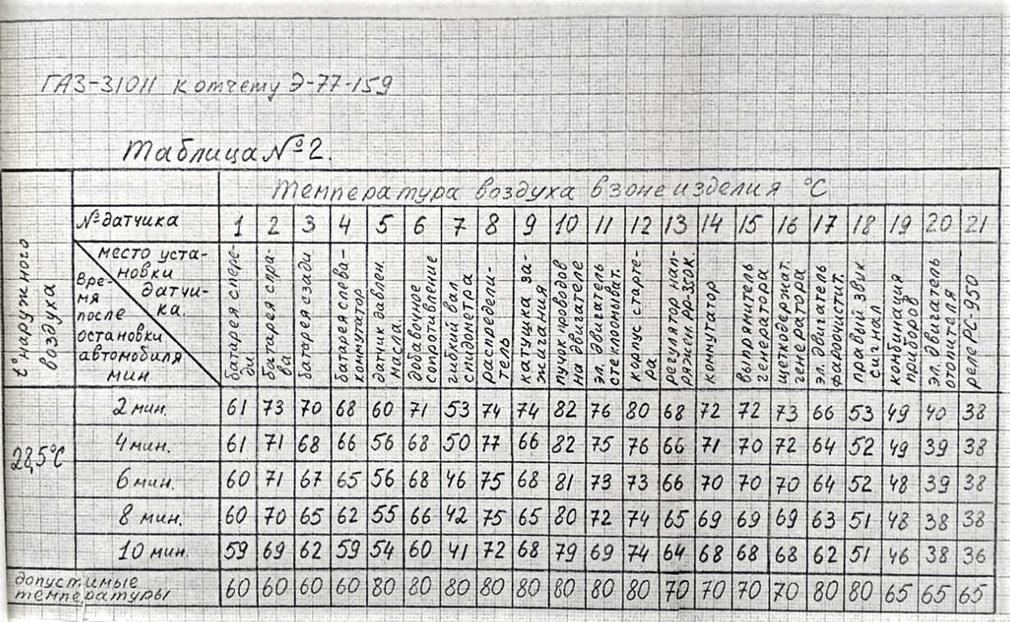 ГАЗ-31011 к отчету Э-77-159
Таблица №2.
t° наружного воздуха
Температура воздуха в зоне изделия °С
№ датчика 1 2 3 4 5 6 7 8 9 10 11 12 13 14 15 16 17 18 19 20 21
место уста-
новки
датчи-
ка.
Вре-
мя
после
остановки
автомобиля
мин
батарея спере-
ди
батарея спра-
ва
батарея сзади
батарея слева-
коммутатор
датчик давлен.
масла.
добавочное
сопротивление
гибкий вал
спидометра
распредели-
тель
катушка за-
жигания
пучок проводов
на двигателе
эл. двигатель
стеклоомыват.
корпус старте-
ра
регулятор нап-
ряжен. РР-350К
коммутатор
выпрямитель
генератора
щеткодержат.
генератора
эл. двигатель
фароочистит.
правый звук.
сигнал
комбинация
приборов
эл. двигатель
отопителя
реле РС-950
28,5°С
2 мин. 61 73 70 68 60 71 53 74 74 82 76 80 68 72 72 73 66 53 49 40 38
4 мин. 61 71 68 66 56 68 50 77 66 82 75 76 66 71 70 72 64 52 49 39 38
6 мин. 60 71 67 65 56 68 46 75 68 81 73 73 66 70 70 70 64 52 48 39 38
8 мин. 60 70 65 62 55 66 42 75 65 80 72 74 65 69 69 69 63 51 48 38 38
10 мин. 59 69 62 59 54 60 41 72 68 79 69 74 64 68 68 68 62 51 46 38 36
допустимые
температуры 60 60 60 60 80 80 80 80 80 80 80 80 70 70 70 70 80 80 65 65 65